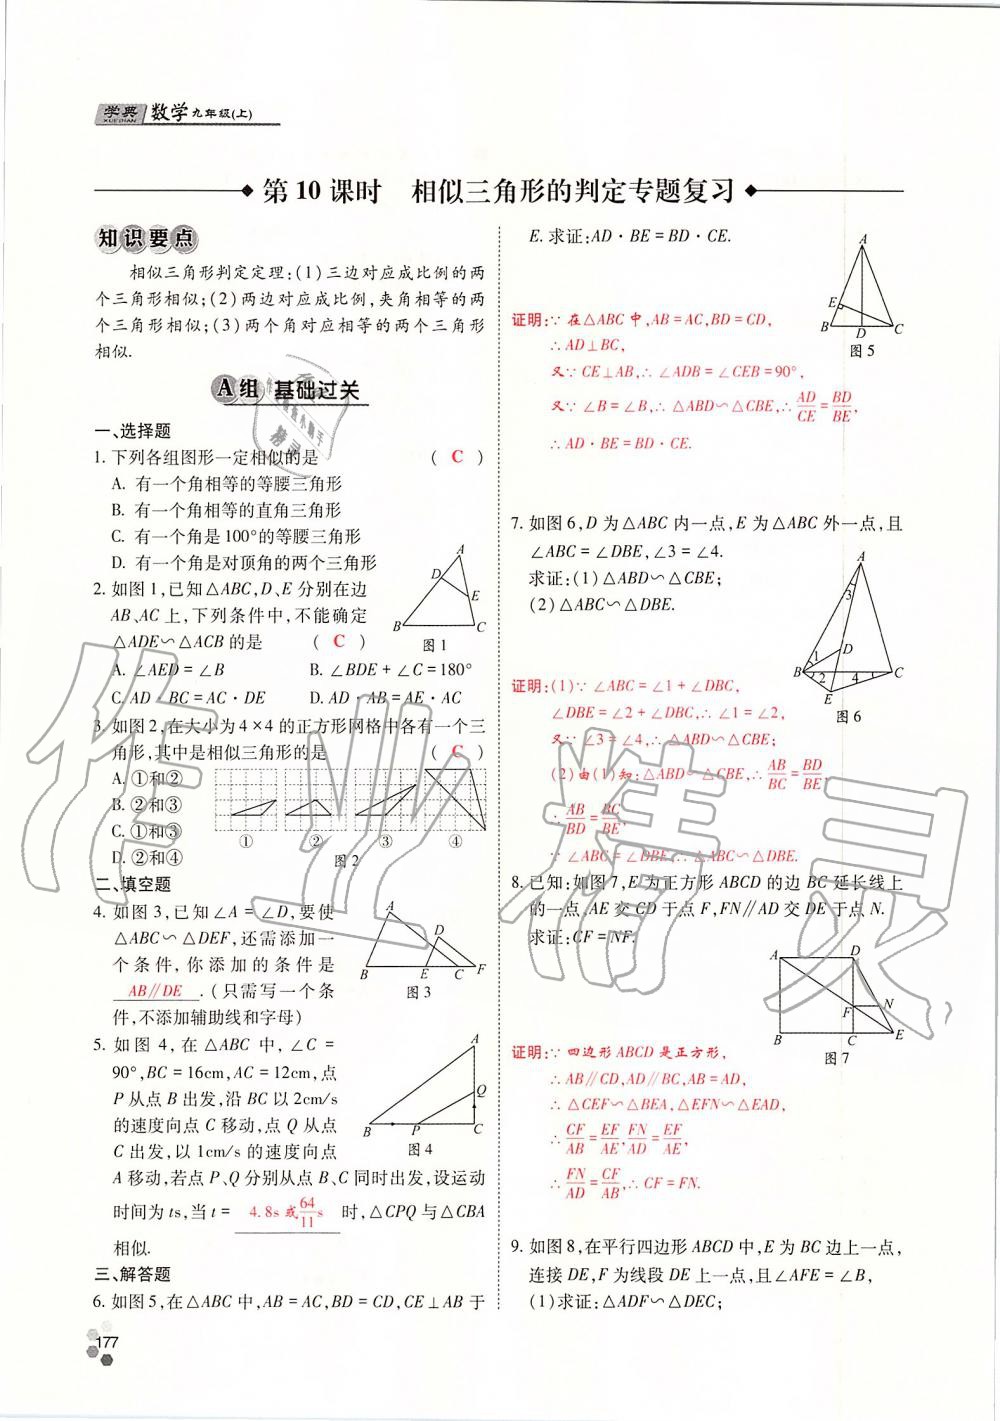 学典 数学 九年级(上)
XUE DIAN
第10课时 相似三角形的判定专题复习
知识要点
相似三角形判定定理:(1)三边对应成比例的两
个三角形相似;(2)两边对应成比例,夹角相等的两
个三角形相似;(3)两个角对应相等的两个三角形
相似.
A组 基础过关
一、选择题
1. 下列各组图形一定相似的是 ( C )
A. 有一个角相等的等腰三角形
B. 有一个角相等的直角三角形
C. 有一个角是100°的等腰三角形
D. 有一个角是对顶角的两个三角形
2. 如图1,已知△ABC,D、E分别在边
AB、AC上,下列条件中,不能确定
△ADE∽△ACB的是 ( C )
A. ∠AED=∠B B. ∠BDE+∠C=180°
C. AD·BC=AC·DE D. AD·AB=AE·AC
A
D
E
B C
图1
3. 如图2,在大小为4×4的正方形网格中各有一个三
角形,其中是相似三角形的是 ( C )
A. ①和②
B. ②和③
C. ①和③
D. ②和④
① ② ③ ④
图2
二、填空题
4. 如图3,已知∠A=∠D,要使
△ABC∽△DEF,还需添加一
个条件,你添加的条件是
AB∥DE .(只需写一个条
件,不添加辅助线和字母)
A
D
B E C F
图3
5. 如图4,在△ABC中,∠C=
90°,BC=16cm,AC=12cm,点
P从点B出发,沿BC以2cm/s
的速度向点C移动,点Q从点
C出发,以1cm/s的速度向点
A移动,若点P、Q分别从点B、C同时出发,设运动
时间为ts,当t= 4.8s或64/11s 时,△CPQ与△CBA
相似.
A
Q
B P C
图4
三、解答题
6. 如图5,在△ABC中,AB=AC,BD=CD,CE⊥AB于
E. 求证:AD·BE=BD·CE.
A
E
B D C
图5
证明:∵在△ABC中,AB=AC,BD=CD,
∴AD⊥BC,
又∵CE⊥AB,∴∠ADB=∠CEB=90°,
又∵∠B=∠B,∴△ABD∽△CBE,∴AD/CE=BD/BE,
∴AD·BE=BD·CE.
7. 如图6,D为△ABC内一点,E为△ABC外一点,且
∠ABC=∠DBE,∠3=∠4.
求证:(1)△ABD∽△CBE;
(2)△ABC∽△DBE.
A
3
D
1
B 2 4 C
E
图6
证明:(1)∵∠ABC=∠1+∠DBC,
∠DBE=∠2+∠DBC,∴∠1=∠2,
又∵∠3=∠4,∴△ABD∽△CBE;
(2)由(1)知:△ABD∽△CBE,∴AB/BC=BD/BE,
∴AB/BD=BC/BE,
∵∠ABC=∠DBE,∴△ABC∽△DBE.
8. 已知:如图7,E为正方形ABCD的边BC延长线上
的一点,AE交CD于点F,FN∥AD交DE于点N.
求证:CF=NF.
A D
F N
B C E
图7
证明:∵四边形ABCD是正方形,
∴AB∥CD,AD∥BC,AB=AD,
∴△CEF∽△BEA,△EFN∽△EAD,
∴CF/AB=EF/AE,FN/AD=EF/AE,
∴FN/AD=CF/AB,∴CF=FN.
9. 如图8,在平行四边形ABCD中,E为BC边上一点,
连接DE,F为线段DE上一点,且∠AFE=∠B,
(1)求证:△ADF∽△DEC;
177
作业精灵